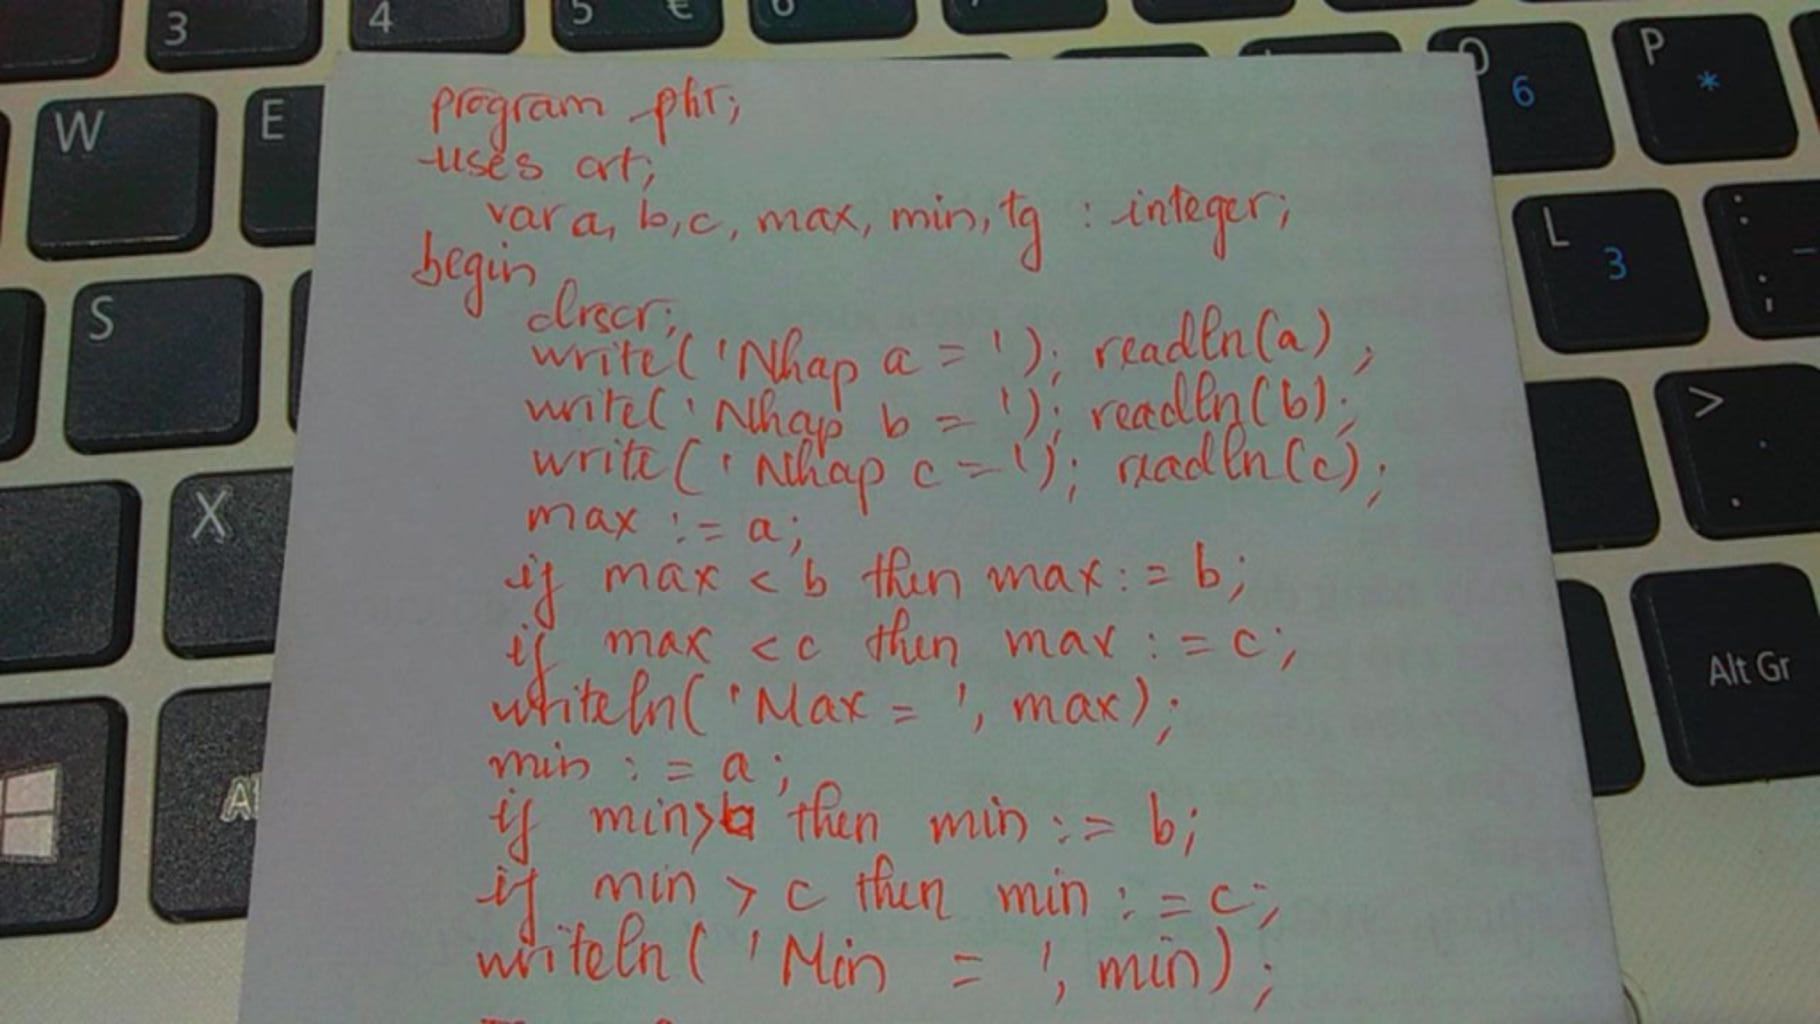 3 4 5 € 6
W E O 6 P *
program pht;
uses crt;
var a, b, c, max, min, tg : integer;
L 3 : ; _
begin
clrscr;
S
write('Nhap a = '); readln(a);
write('Nhap b = '); readln(b);
write('Nhap c = '); readln(c);
> .
X
max := a;
if max < b then max := b;
if max < c then max := c;
Alt Gr
writeln('Max = ', max);
min := a;
if min > b then min := b;
if min > c then min := c;
writeln('Min = ', min);